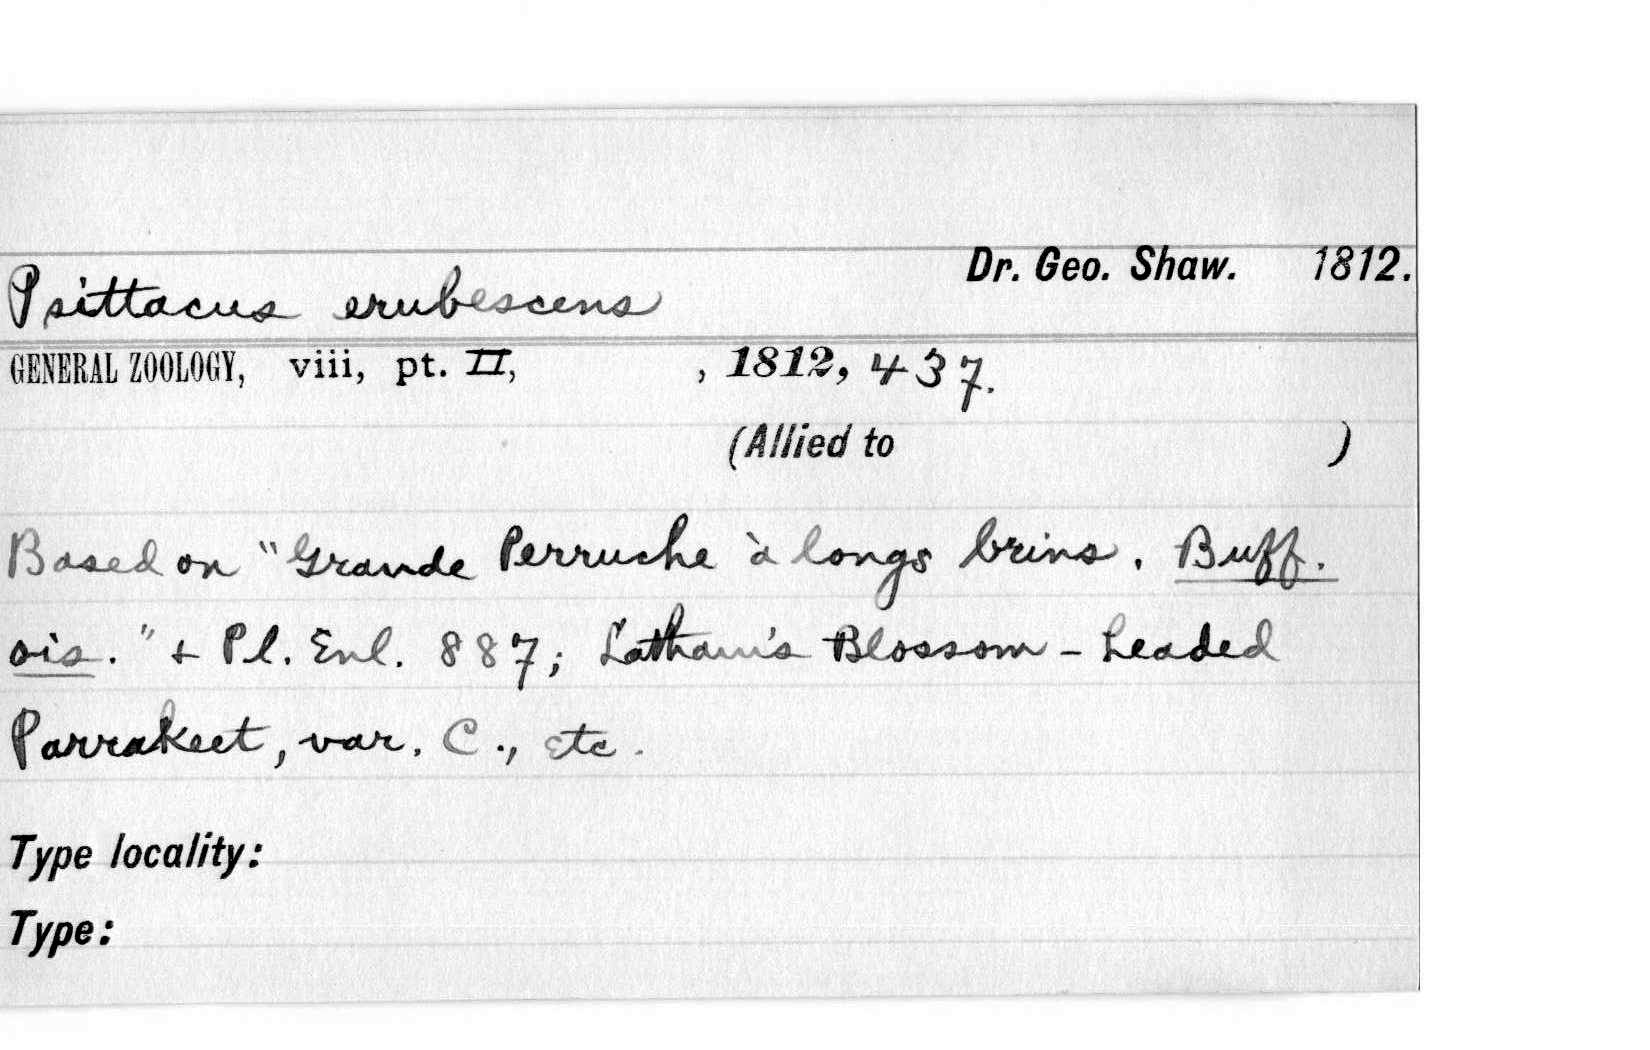 Dr. Geo. Shaw. 1812.
Psittacus erubescens
GENERAL ZOOLOGY, viii, pt. II, , 1812, 437.
(Allied to )
Based on "Grande Perruche à longs brins. Buff.
ois." + Pl. Enl. 887; Latham's Blossom-headed
Parrakeet, var. C., etc.
Type locality:
Type: